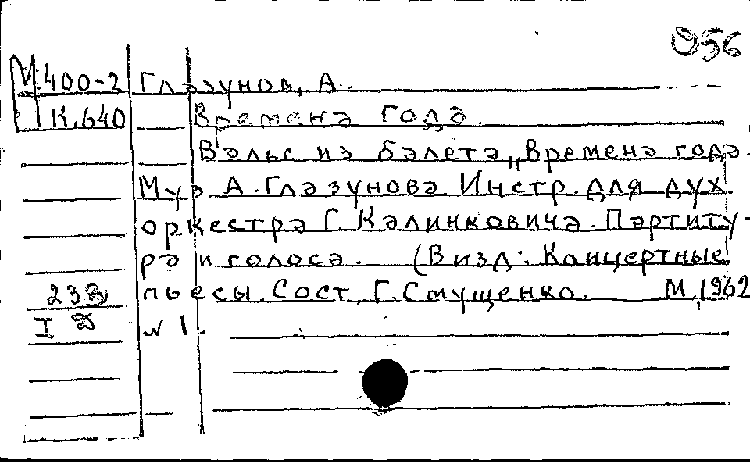 056
М 400-2 Глазунов, А.
К.640 Времена года
Вальс из балета „Времена года.
Муз. А. Глазунова. Инстр. для дух.
оркестра Г. Калинковича. Партиту-
ра и голоса. (В изд.: Концертные
23 пьесы. Сост. Г. Смущенко. М, 1962
I № 1.